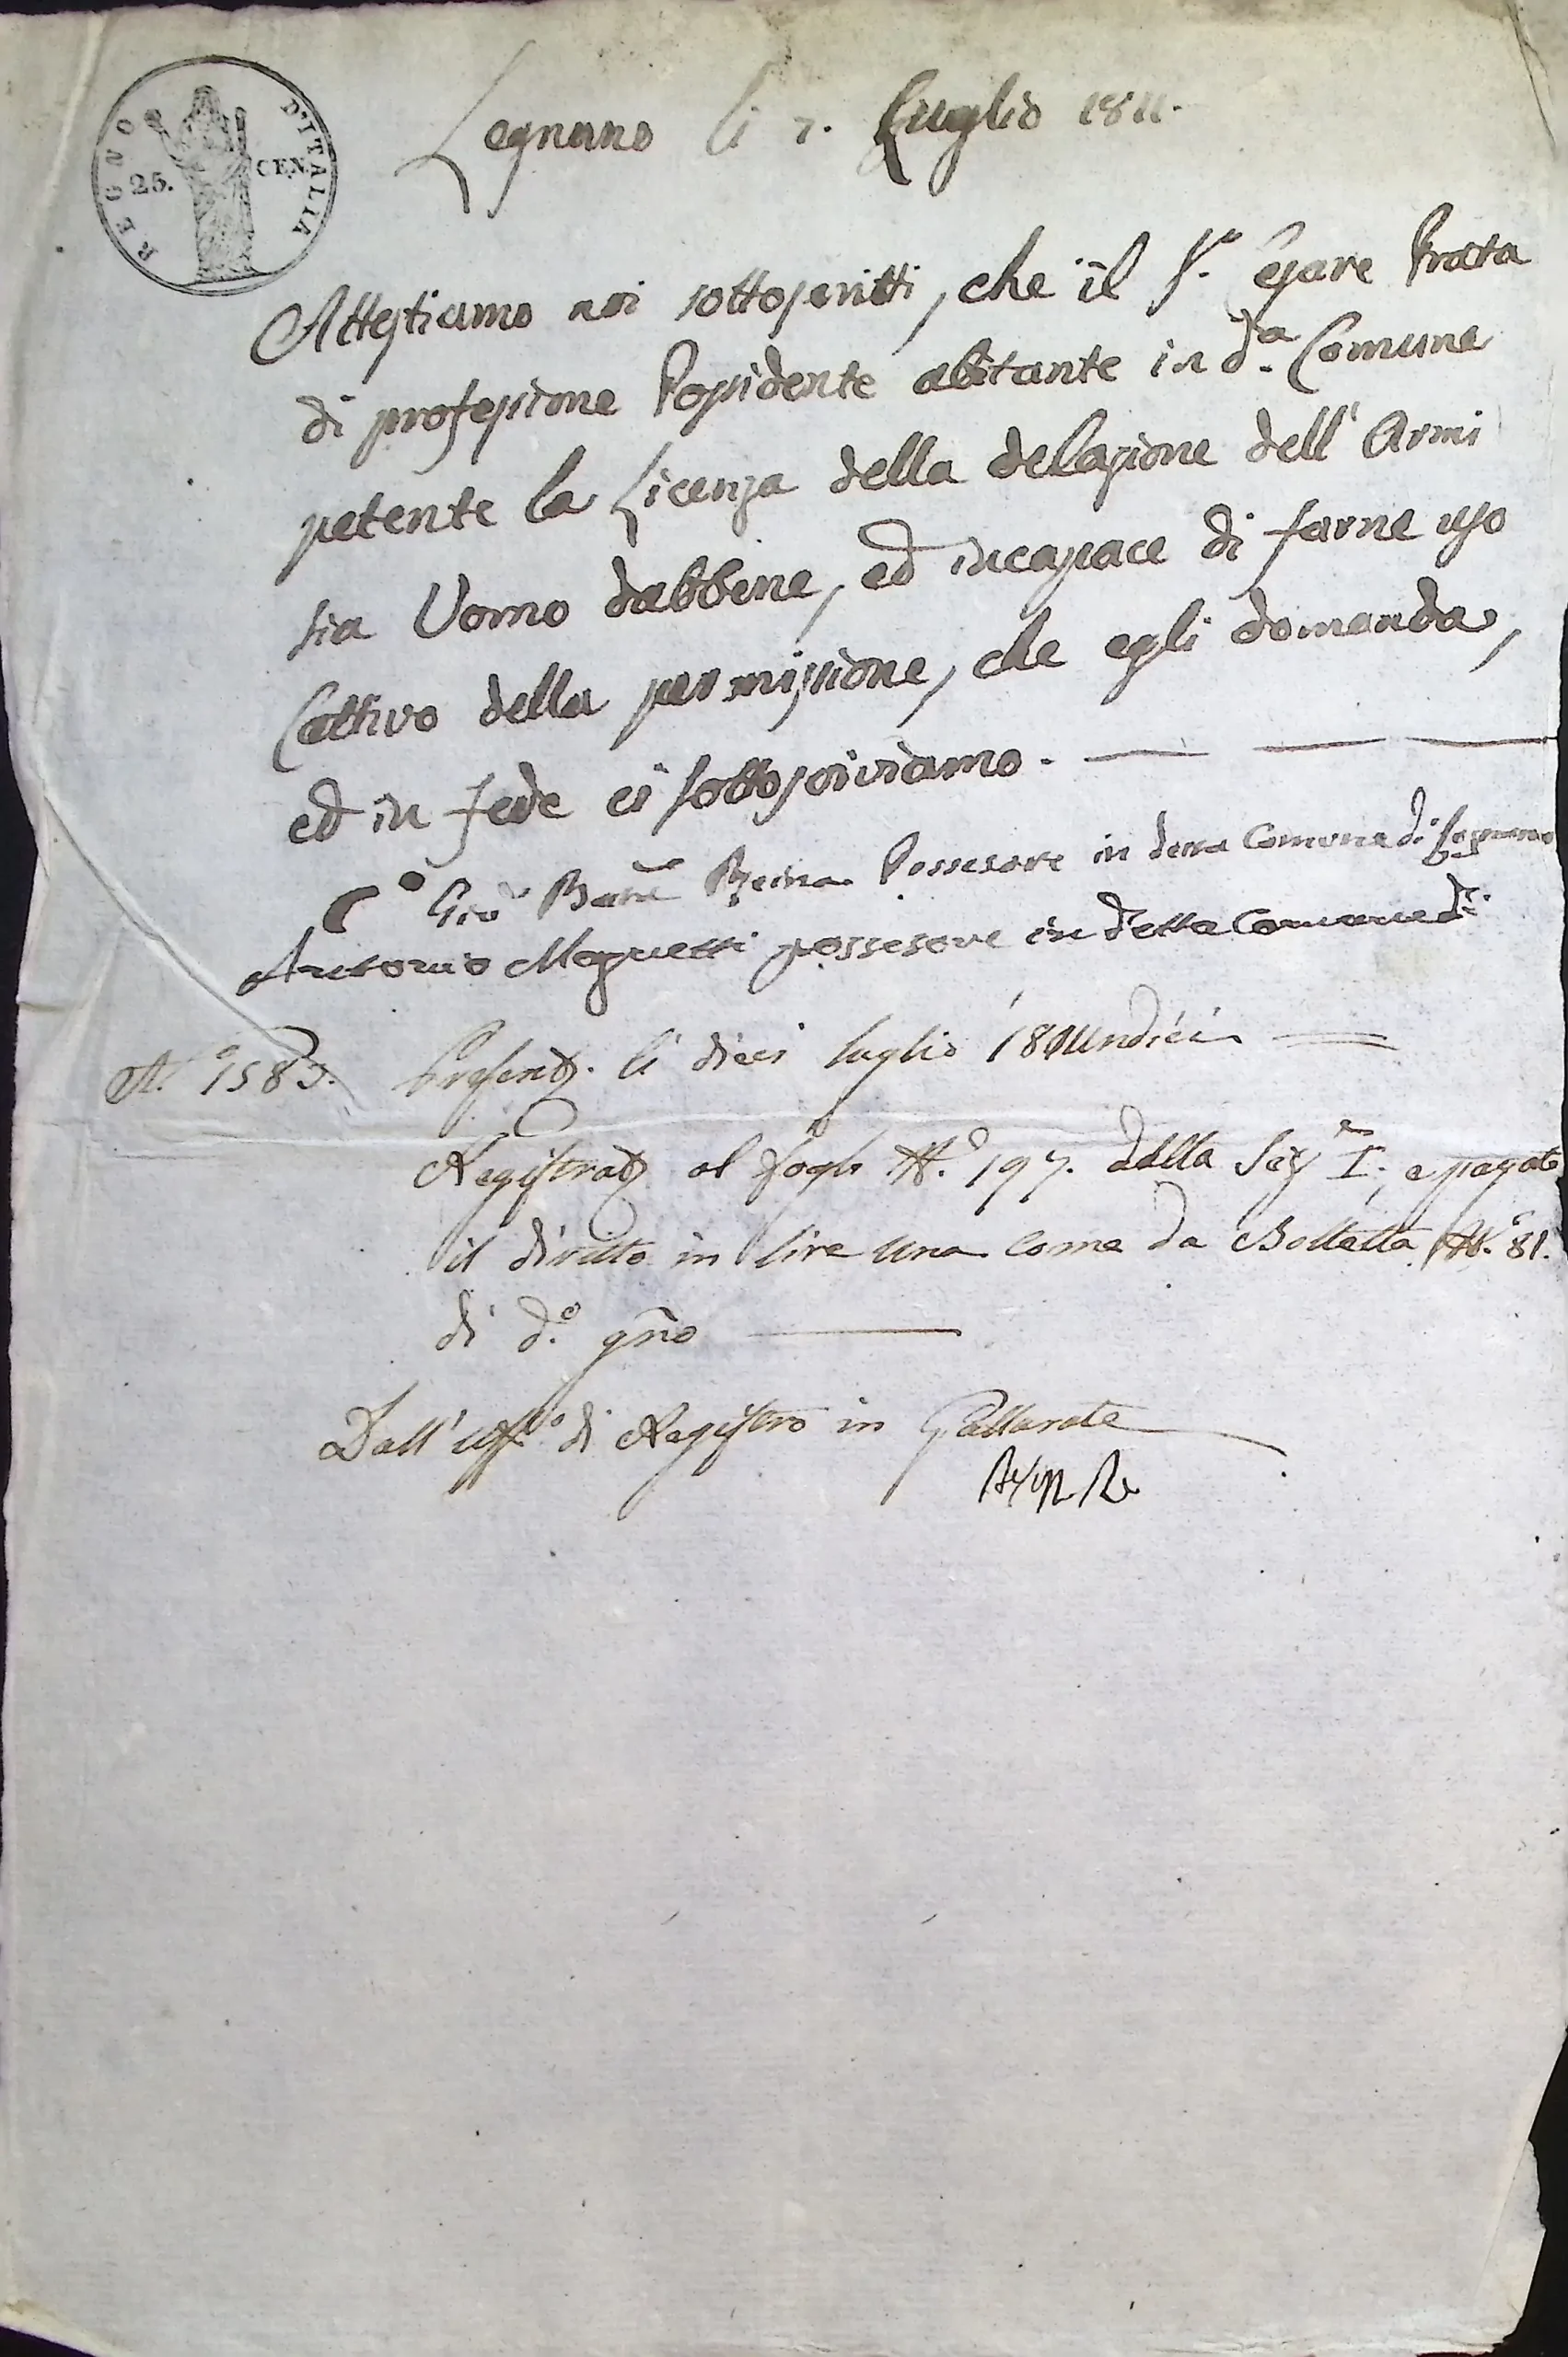 REGNO D'ITALIA
25. CEN.
Legnano li 7. Luglio 1811.
Attestiamo noi sottoscritti, che il S.r Cesare Prata
di professione Possidente abitante in d.a Comune
petente la Licenza della delazione dell'Armi
sia Uomo dabbene, ed incapace di farne uso
Cattivo della permissione, che egli domanda,
ed in fede ci sottoscriviamo.
Gio Batta Reina Possesore in detta Comune di Legnano
Antonio Magnetti possesore in detta Comune d.
N.o 1583. Present. li dieci luglio 1811undici
Registrato al fogl. N.o 197. della Sez. I. e pagato
il diritto in lire una come da Bolletta N.o 81.
di d.o gno
Dall'uff.o di Registro in Gallarate